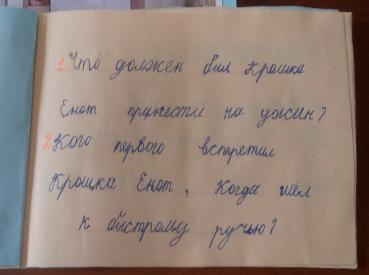 1. Что должен был Крошка
Енот принести на ужин?
2. Кого первого встретил
Крошка Енот, когда шёл
к быстрому ручью?